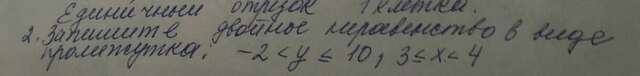 Единичный отрезок 1 клетка.
2. Запишите двойное неравенство в виде
промежутка. -2 < y ≤ 10, 3 ≤ x < 4